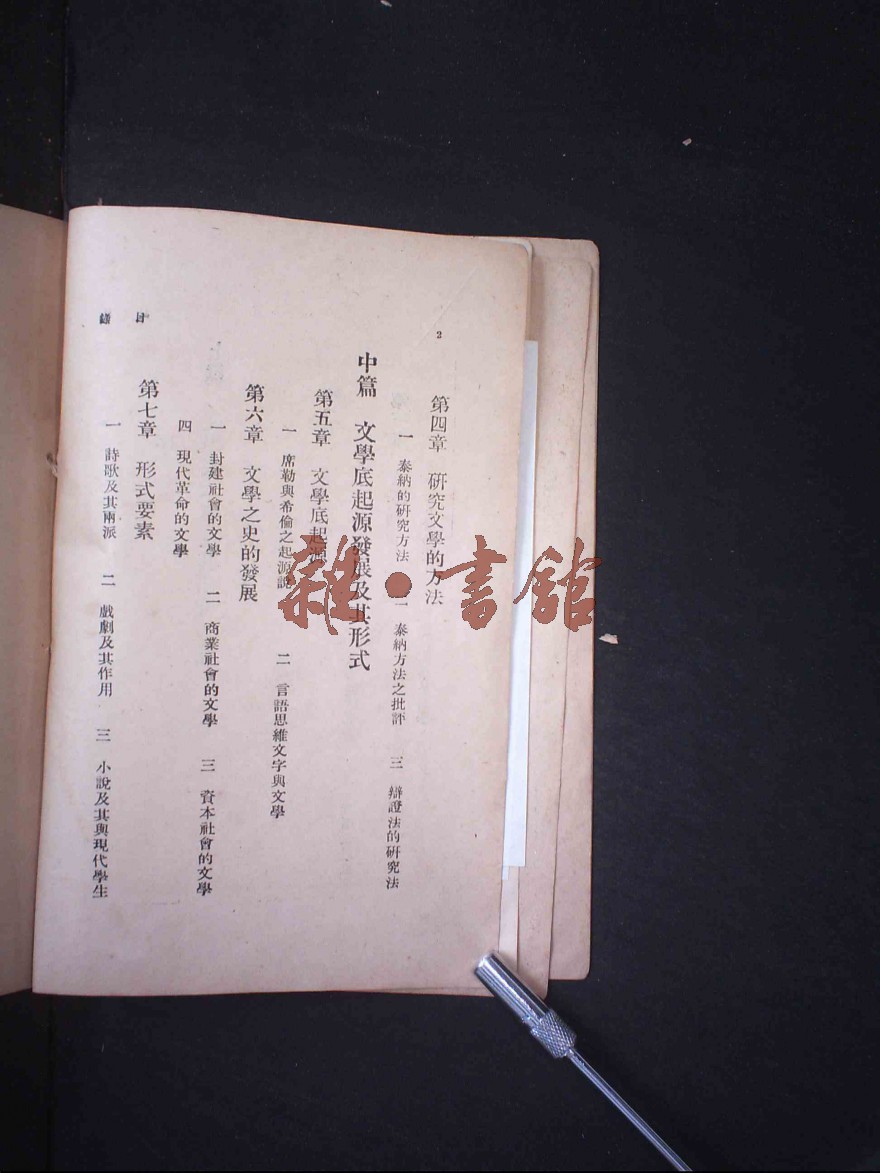 2
第四章　研究文學的方法
一　泰納的研究方法　二　泰納方法之批評　三　辯證法的研究法
中篇　文學底起源發展及其形式
第五章　文學底起源
一　席勒與希倫之起源說　二　言語思維文字與文學
第六章　文學之史的發展
一　封建社會的文學　二　商業社會的文學　三　資本社會的文學
四　現代革命的文學
第七章　形式要素
一　詩歌及其兩派　二　戲劇及其作用　三　小說及其與現代學生
目錄
雜·書館